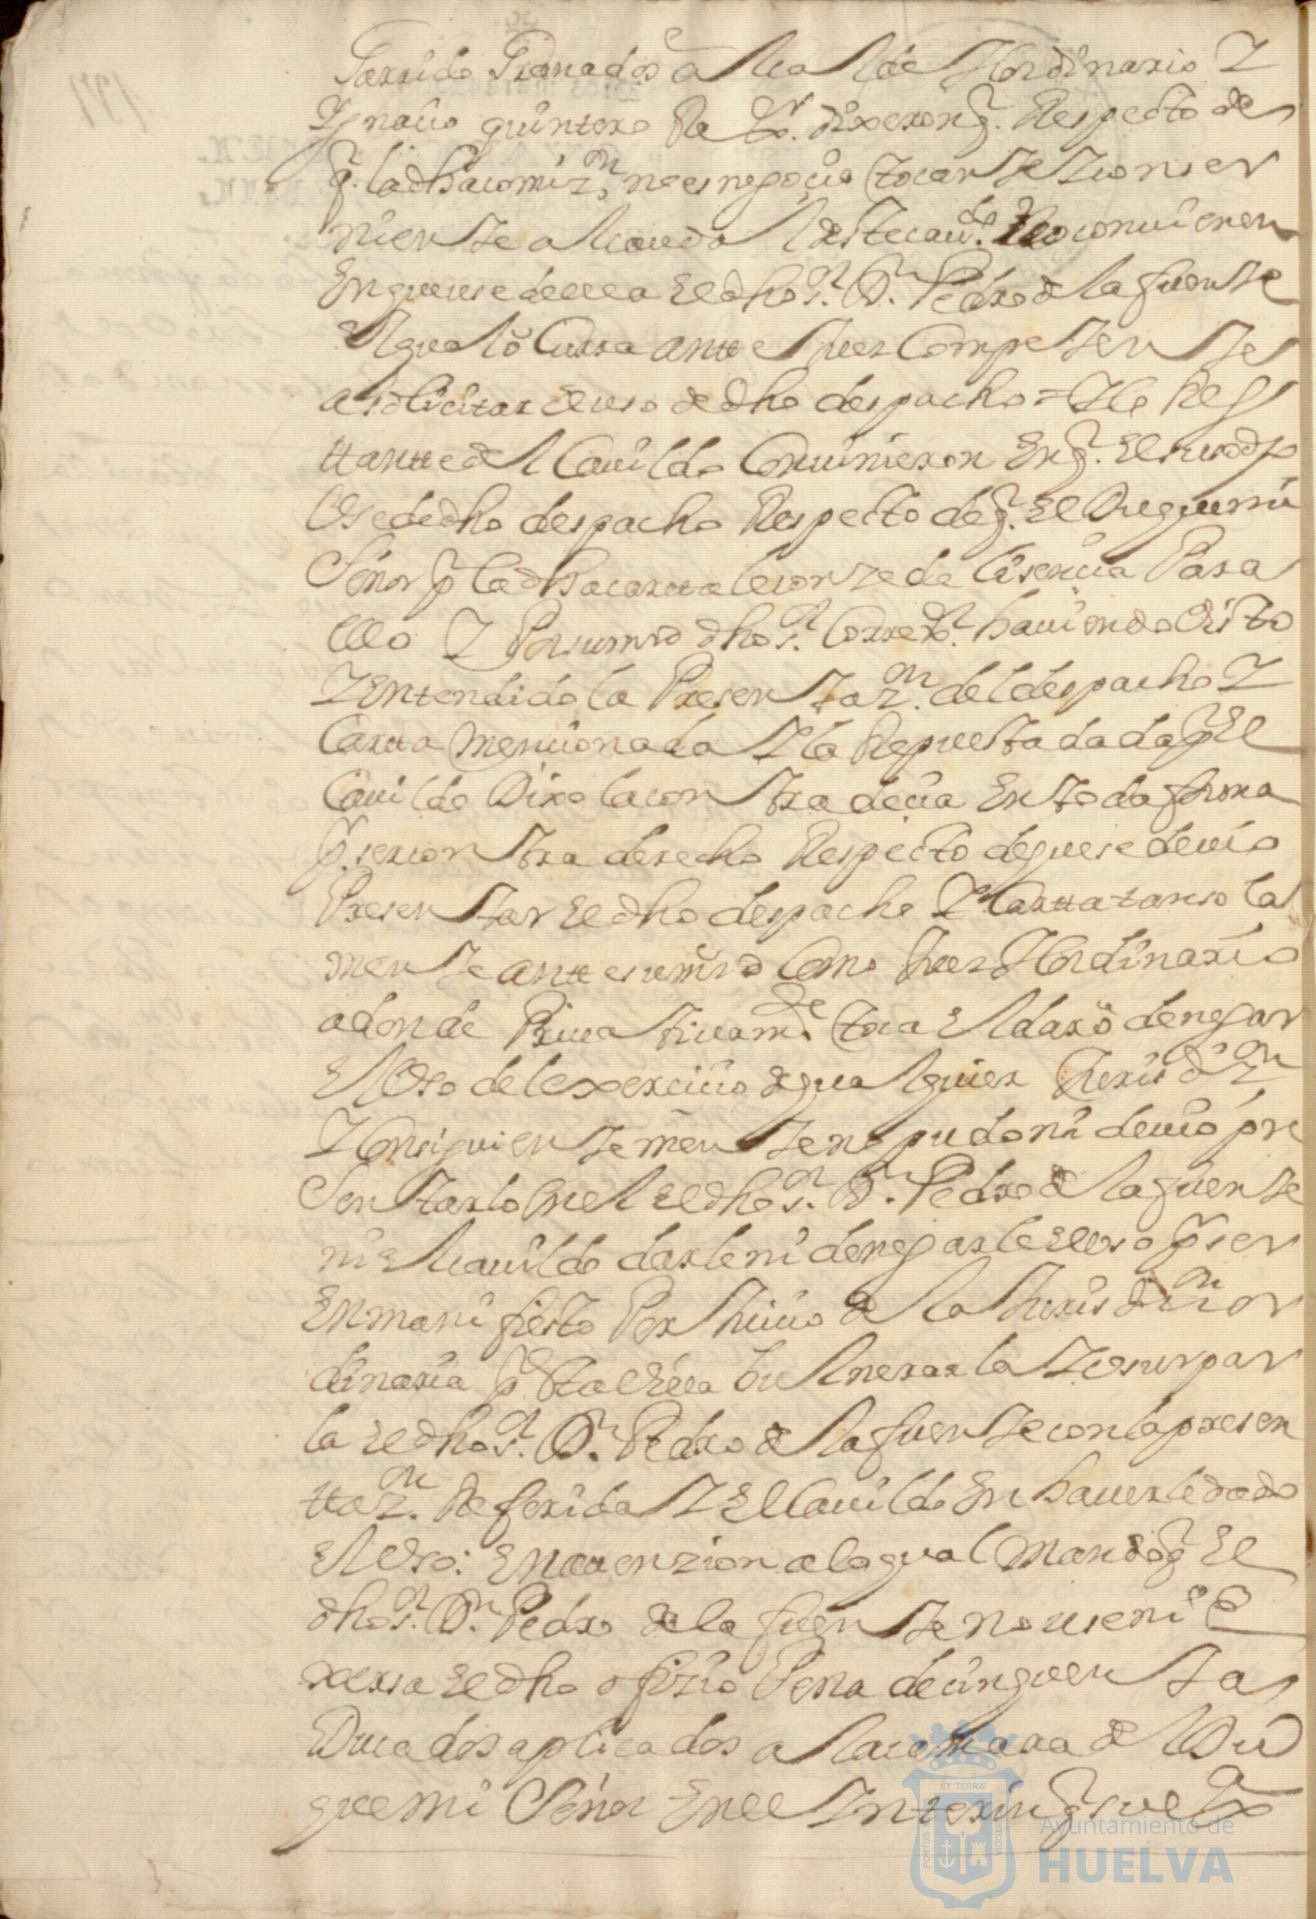 Garrido Granados Alcalde Hordinario Y
Ygnacio quintero Re Dor. dixeron q. Respecto de
q. la dha comizn no es negocio tocante y conser
niente al cavda deste cavdo. no convienen
En que use de ella El dho sr. Dn. Pedro de la fuente
El qual ocurra antte Juez Competente
a solicitar el uso de dho despacho = Y lo Res
ttantte del Cavildo Convinieron En q. El susodho
Use de dho despacho Respecto de q. El Duque mi
Señor p la dha cartta le conzede lisencia Para
ello Y Por su mrd dho sr. Corregor. haviendo visto
Y Entendido la Presentazn. del despacho Y
Cartta mencionada Y la Repuesta dada p El
Cavildo Dixo la contradecia En toda forma
p. ser contra derecho Respecto de que se devio
Presentar El dho despacho Y Cartta tan so la
mente antte su mrd Como Juez Hordinario
a donde Privativamte. toca El dar o denegar
El Uso del exercicio de qualquier Jurisdizn
Y Consiguientemente no pudo ni devio pre
Sentarlo en el El dho sr. Dn. Pedro de la fuente
ni El cavildo darle ni denegarle El uso p ser
En manifiesto Perjuicio de la Jurisdicn or
dinaria p vulnerarla Y usurpar
la El dho sr. Dn. Pedro de la fuente con la presen
ttazn. Referida Y El Cavildo En haverle dado
El Uso: En attenzion a lo qual Mando q El
dho sr. Dn. Pedro de la fuente no use ni E
xersa El dho ofizio Pena de cinquenta
Ducados aplicados a la camara del Du
que mi Señor En el Ynterin q su Exa
Ayuntamiento de
HUELVA